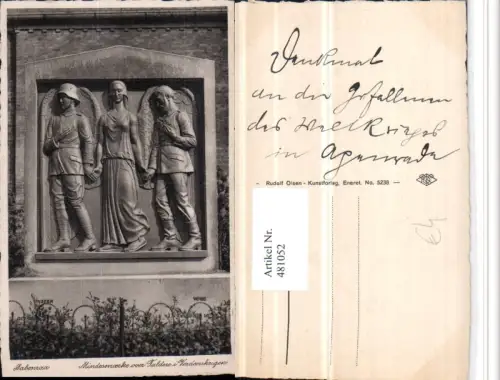 Aabenraa Mindesmærke over Faldne i Verdenskrigen
Denkmal
an die Gefallenen
des Weltkrieges
in Apenrade
Rudolf Olsen - Kunstforlag, Eneret. No. 5236
Artikel Nr.
481052